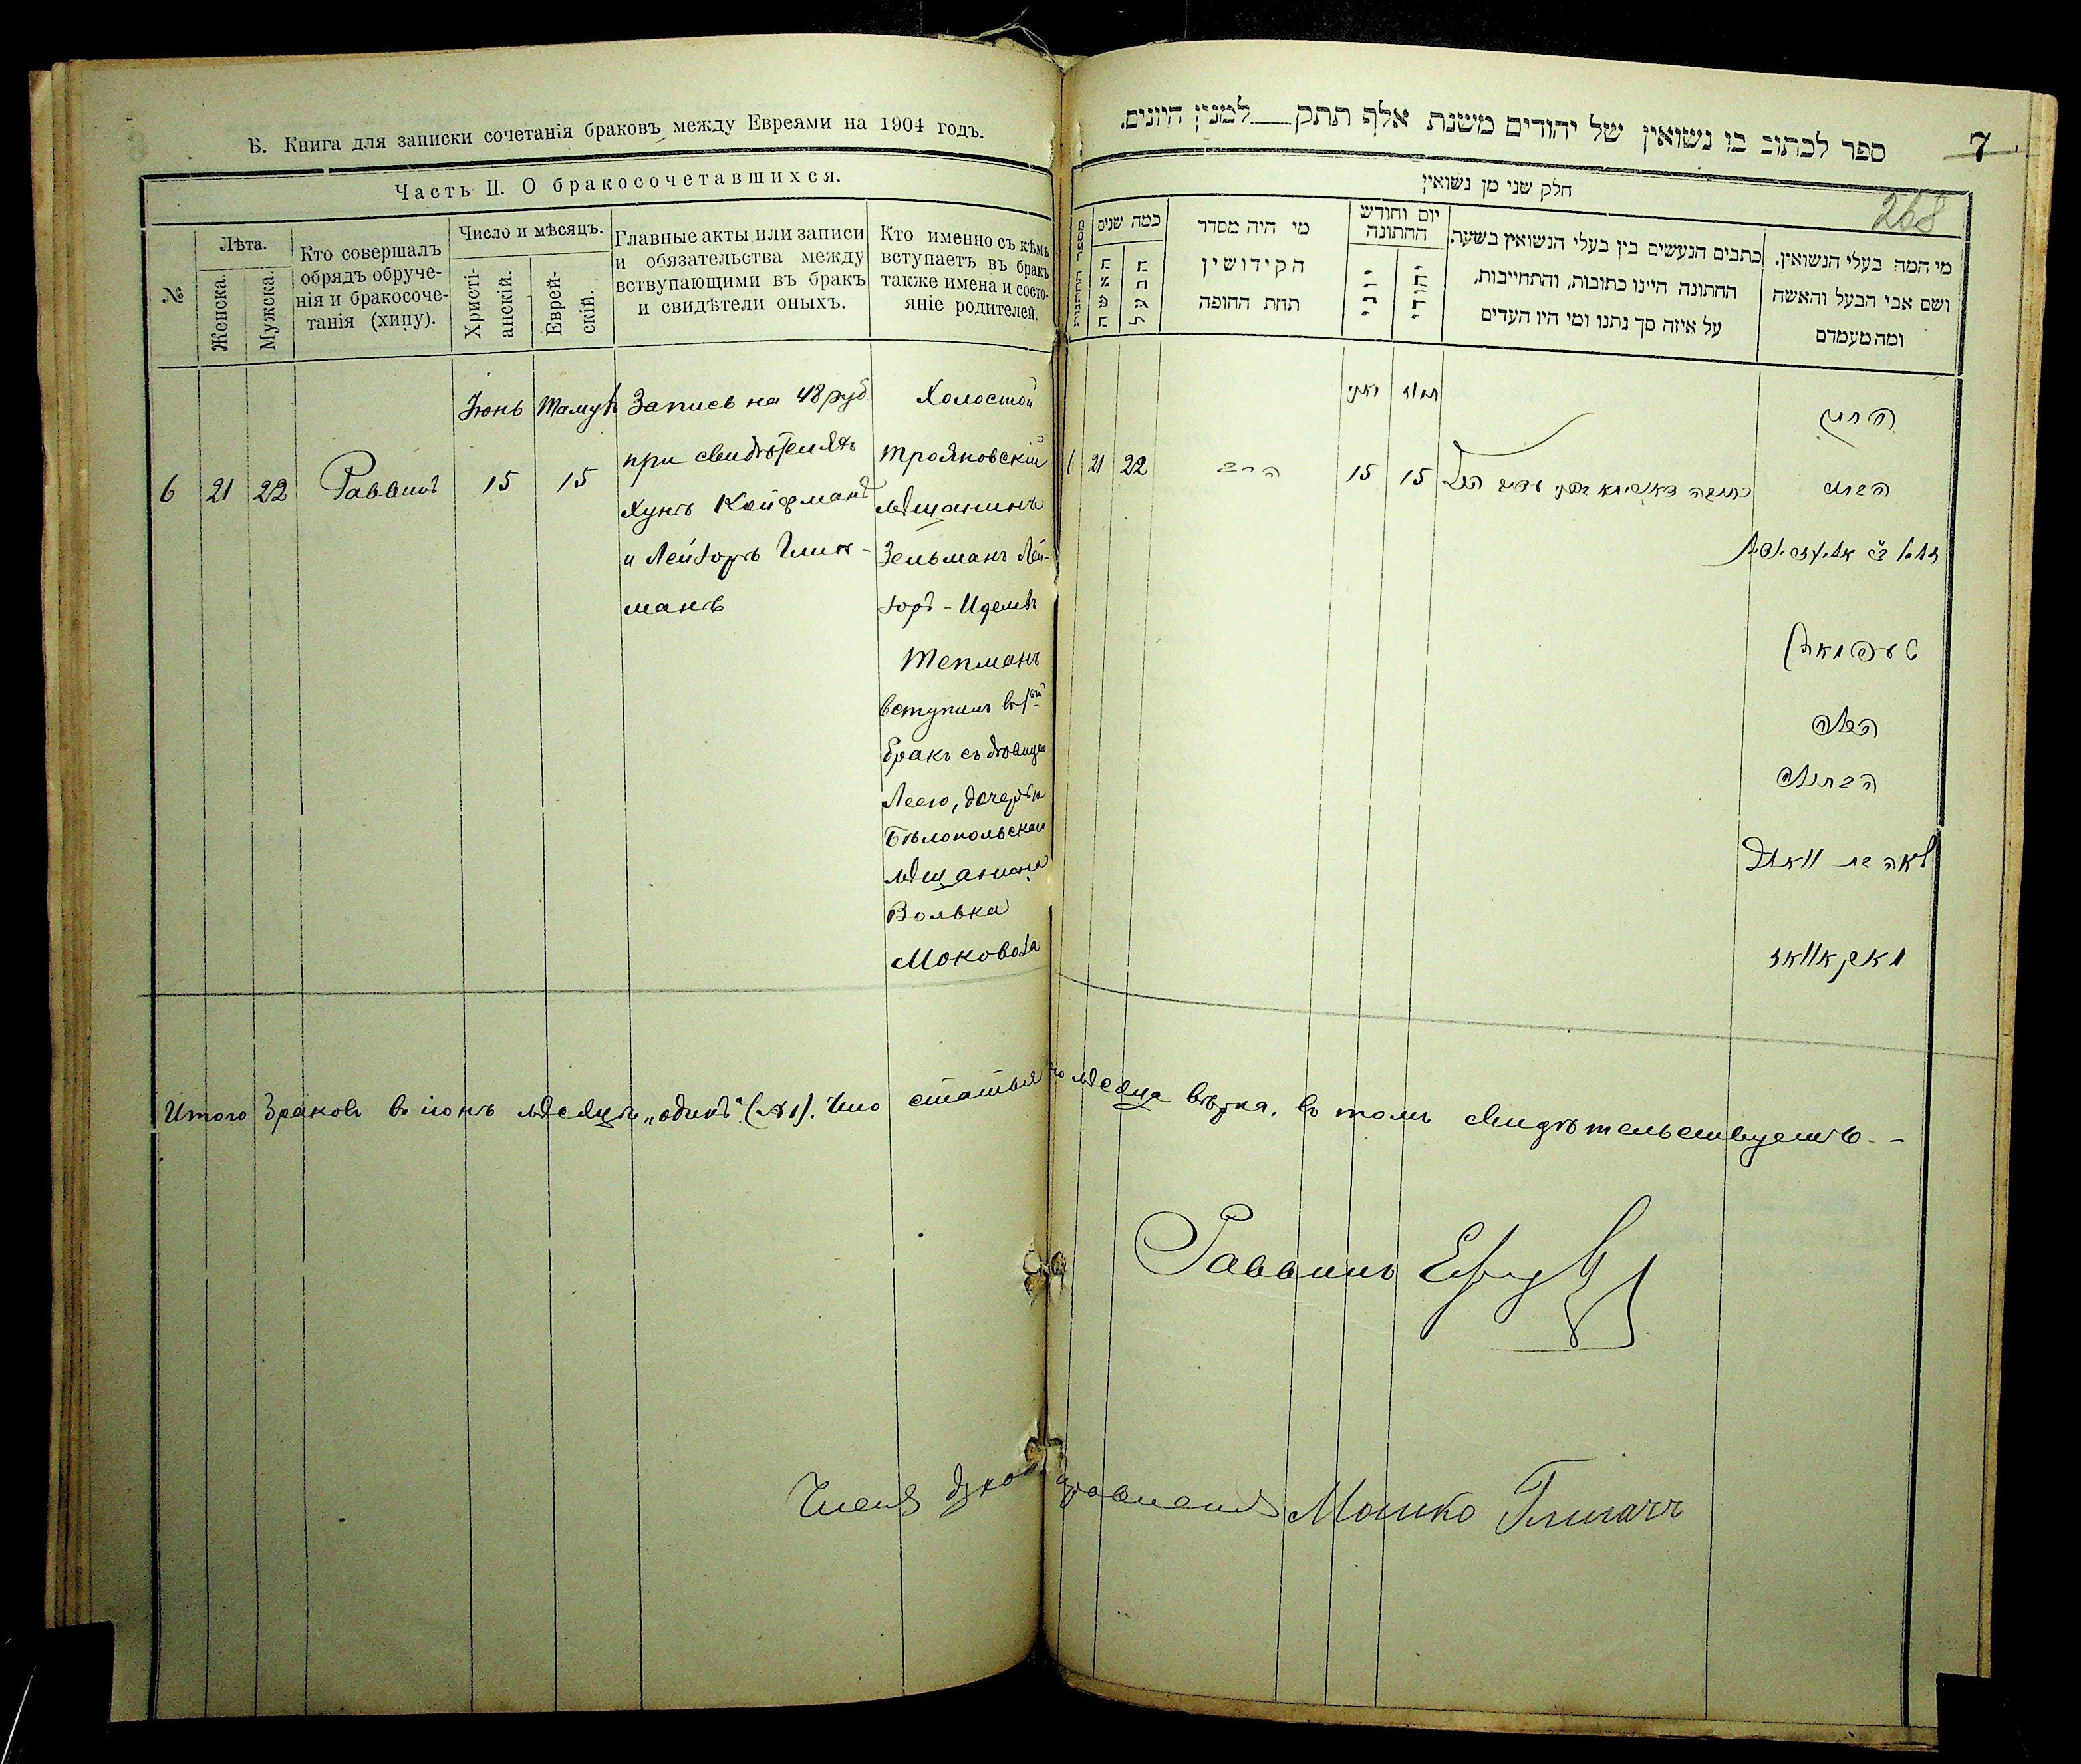 Б. Книга для записки сочетанія браковъ между Евреями на 1904 годъ.
Часть II. О бракосочетавшихся.
№
Лѣта.
Женска.
Мужска.
Кто совершалъ
обрядъ обруче-
нія и бракосоче-
танія (хипу).
Число и мѣсяцъ.
Христі-
анскій.
Еврей-
скій.
Главные акты или записи
и обязательства между
вствупающими въ бракъ
и свидѣтели оныхъ.
Кто именно съ кѣмъ
вступаетъ въ бракъ
также имена и состо-
яніе родителей.
6
21
22
Раввинъ
Іюнь
15
Тамуз
15
Запись на 48 руб.
при свидѣтеляхъ
Хунъ Койфманъ
и Лейзоръ Глик-
манъ
Холостой
Трояновскій
мѣщанинъ
Зельманъ Лей-
зоръ-Иделевъ
Тепманъ
вступилъ въ 1ый
бракъ съ дѣвицею
Леею, дочерью
Бѣлопольскаго
мѣщанина
Волька
Моковоза
ספר לכתוב בו נשואין של יהודים משנת אלף תתק למנין היונים.
7
268
חלק שני מן נשואין
מספר החתונות
כמה שנים
האשה
הבעל
מי היה מסדר
הקידושין
תחת החופה
יום וחודש
החתונה
יוני
יהודי
כתבים הנעשים בין בעלי הנשואין בשעת
החתונה היינו כתובות, והתחייבות,
על איזה סך נתנו ומי היו העדים
מי המה בעלי הנשואין.
ושם אבי הבעל והאשה
ומה מעמדם
6
21
22
הרב
יוני
15
תמוז
15
הבתולה
לאה בת
Итого браковъ въ іюнѣ мѣсяцѣ „одинъ" (№ 1). Что статья по мѣсяцу вѣрна, въ томъ свидѣтельствуетъ -
Раввинъ
Членъ Духов. правленія Мошко